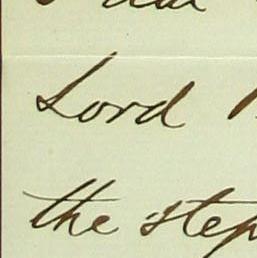 Lord
the step